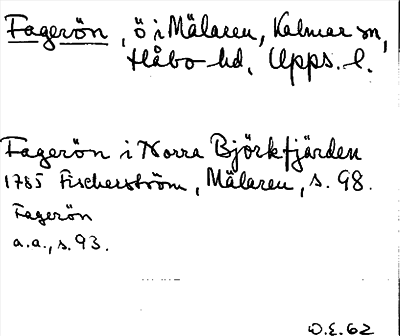 Fagerön, ö i Mälaren, Kalmar sn,
Håbo hd, Upps. l.
Fagerön i Norra Björkfjärden
1785 Fischerström, Mälaren, s. 98.
Fagerön
a.a., s. 93.
D.E. 62